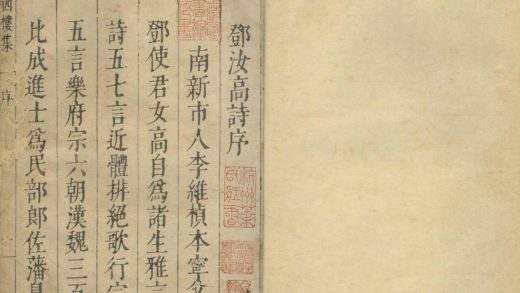 鄧汝高詩序
南新市人李維楨本寧
鄧使君女高自爲諸生雅言
詩五七言近體排絶歌行宗
五言樂府宗六朝漢魏三百
比成進士爲民部郎佐藩臬
樓集 序